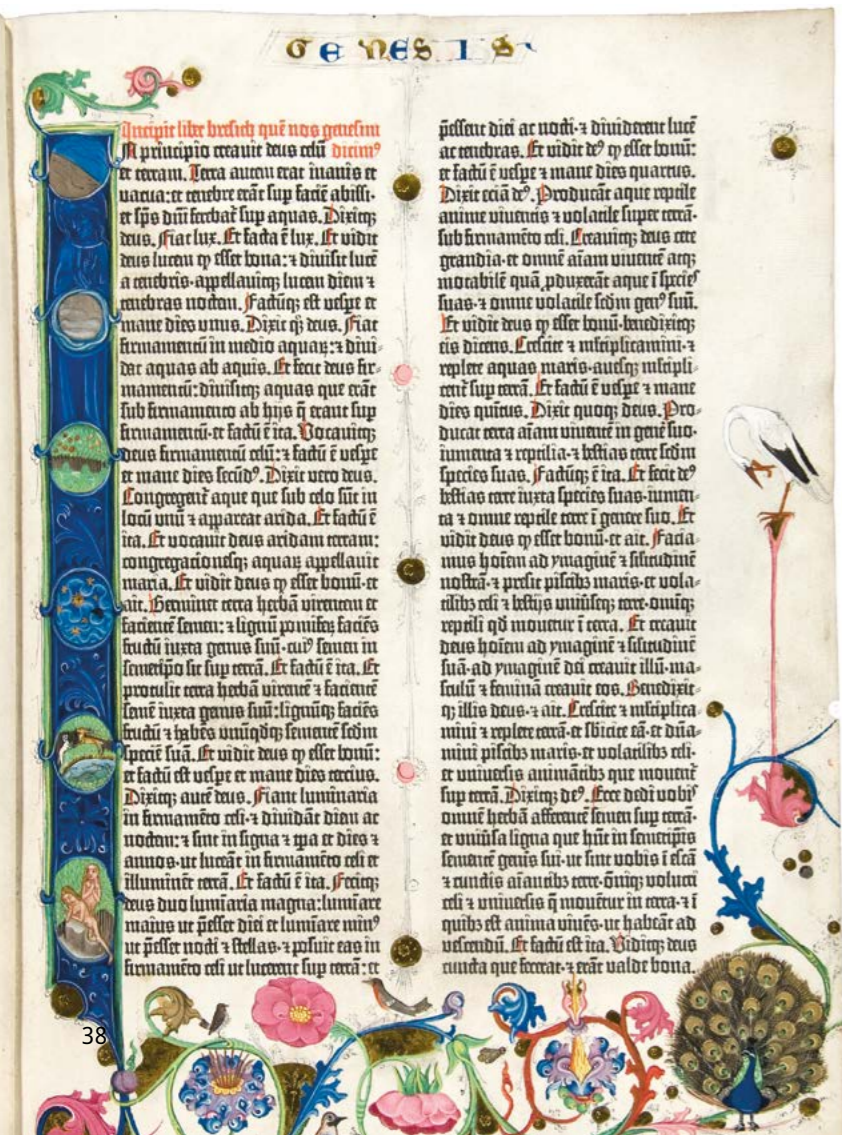 GENESIS
5
Incipit liber bresich quē nos genesim
In principio creauit deus celū dicim⁹
et terram. Terra autem erat inanis et
vacua: et tenebre erāt sup faciē abissi·
et sp̄s dn̄i ferebat̄ sup aquas. Dixitq;
deus. Fiat lux. Et facta ē lux. Et vidit
deus lucem ꝙ esset bona: ⁊ diuisit lucē
a tenebris·appellauitq; lucem diem ⁊
tenebras noctem. Factūq; est vespe et
mane dies vnus. Dixit q̄; deus. Fiat
firmamentū in medio aquaꝝ: ⁊ diui-
dat aquas ab aquis. Et fecit deus fir-
mamentū: diuisitq; aquas que erāt
sub firmamento ab hijs q̄ erant sup
firmamentū·et factū ē ita. Vocauitq;
deus firmamentū celū: ⁊ factū ē vespe
et mane dies secūd⁹. Dixit vero deus.
Congregent̄ aque que sub celo sūt in
locū vnū ⁊ appareat arida. Et factū ē
ita. Et vocauit deus aridam terram:
congregacionesq; aquaꝝ appellauit
maria. Et vidit deus ꝙ esset bonū·et
ait. Germinet terra herbā virentem et
facientē semen: ⁊ lignū pomifeꝝ faciēs
fructū iuxta genus suū·cui⁹ semen in
semetipo sit sup terrā. Et factū ē ita. Et
protulit terra herbā virentē ⁊ facientē
semē iuxta genus suū: lignūq; faciēs
fructū ⁊ habēs vnūqdq; sementē scdm
speciē suā. Et vidit deus ꝙ esset bonū:
et factū est vespe et mane dies tercius.
Dixitq; autē deus. Fiant luminaria
in firmamēto celi·⁊ diuidāt diem ac
noctem: ⁊ sint in signa ⁊ tpa et dies ⁊
annos·ut luceāt in firmamēto celi et
illuminēt terrā. Et factū ē ita. Fecitq;
deus duo luminaria magna: lumiare
maius ut p̄esset diei et lumiare min⁹
ut p̄esset nocti ⁊ stellas·⁊ posuit eas in
firmamēto celi ut lucerent sup terrā: et
p̄essent diei ac nocti·⁊ diuiderent lucē
ac tenebras. Et vidit de⁹ ꝙ esset bonū:
et factū ē vespe ⁊ mane dies quartus.
Dixit eciā de⁹. Producāt aque reptile
anime viuentis ⁊ volatile super terrā·
sub firmamēto celi. Creauitq; deus cete
grandia·et omnē aīam viuentē atq;
motabilē quā ꝓduxerāt aque ī species
suas·⁊ omne volatile scdm gen⁹ suū.
Et vidit deus ꝙ esset bonū·benedixitq;
eis dicens. Crescite ⁊ mltiplicamini·⁊
replete aquas maris·auesq; mltipli-
cent̄ sup terrā. Et factū ē vespe ⁊ mane
dies quītus. Dixit quoq; deus. Pro-
ducat terra aīam viuentē in genē suo·
iumenta ⁊ reptilia·⁊ bestias terre scdm
species suas. Factūq; ē ita. Et fecit de⁹
bestias terre iuxta species suas·iumen-
ta ⁊ omne reptile terre ī genere suo. Et
vidit deus ꝙ esset bonū·et ait. Facia-
mus hoīem ad ymaginē ⁊ silitudinē
nostrā·⁊ presit piscibꝫ maris·et vola-
tilibꝫ celi ⁊ bestijs vniūseq; terre·omīq;
reptili qd mouetur ī terra. Et creauit
deus hoīem ad ymaginē ⁊ silitudinē
suā·ad ymaginē dei creauit illū·ma-
sculū ⁊ feminā creauit eos. Benedixit-
q; illis deus·⁊ ait. Crescite ⁊ mltiplica-
mini ⁊ replete terrā·et sbicite eā·et dn̄a-
mini piscibꝫ maris·et volatilibꝫ celi·
et vniuersis animātibꝫ que mouent̄
sup terrā. Dixitq; de⁹. Ecce dedi vobis
omnē herbā afferentē semen sup terrā·
et vniūsa ligna que hn̄t in semetipīs
sementē genīs sui·ut sint vobis ī escā
⁊ cunctis aīantibꝫ terre·om̄iq; volucri
celi ⁊ vniuersis q̄ mouētur in terra·⁊ ī
quibꝫ est anima viuēs·ut habeāt ad
vescendū. Et factū est ita. Viditq; deus
cuncta que fecerat·⁊ erāt valde bona.
38